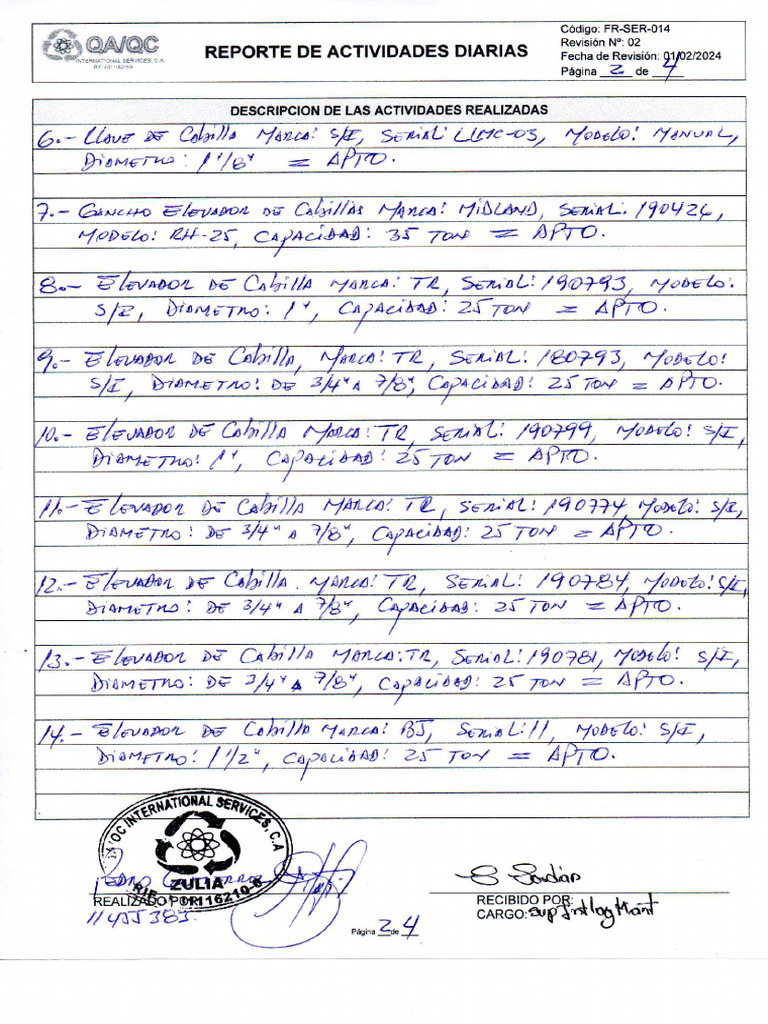 QA/QC
INTERNATIONAL SERVICES, C.A.
REPORTE DE ACTIVIDADES DIARIAS
Código: FR-SER-014
Revisión Nº: 02
Fecha de Revisión: 01/02/2024
Página 2 de 4
DESCRIPCION DE LAS ACTIVIDADES REALIZADAS
6.- Llave de Cabilla Marca: S/I, Serial: LLMC-03, Modelo: Manual,
Diametro: 1 1/8" = APTO.
7.- Gancho Elevador de Cabillas Marca: MIDLAND, Serial: 190426,
Modelo: RH-25, Capacidad: 35 TON = APTO.
8.- Elevador de Cabilla Marca: TR, Serial: 190793, Modelo:
S/I, Diametro: 1", Capacidad: 25 TON = APTO.
9.- Elevador de Cabilla, Marca: TR, Serial: 180793, Modelo:
S/I, Diametro: de 3/4" a 7/8", Capacidad: 25 TON = APTO.
10.- Elevador de Cabilla Marca: TR, Serial: 190799, Modelo: S/I,
Diametro: 1", Capacidad: 25 TON = APTO.
11.- Elevador de Cabilla Marca: TR, Serial: 190774, Modelo: S/I,
Diametro: de 3/4" a 7/8", Capacidad: 25 TON = APTO.
12.- Elevador de Cabilla. Marca: TR, Serial: 190784, Modelo: S/I,
Diametro: de 3/4" a 7/8", Capacidad: 25 TON = APTO.
13.- Elevador de Cabilla Marca: TR, Serial: 190781, Modelo: S/I,
Diametro: de 3/4" a 7/8", Capacidad: 25 TON = APTO.
14.- Elevador de Cabilla Marca: BJ, Serial: 11, Modelo: S/I,
Diametro: 1 1/2", Capacidad: 25 TON = APTO.
QA/QC INTERNATIONAL SERVICES, C.A
ZULIA
REALIZADO POR:
11455383.
RECIBIDO POR:
CARGO: Sup
Página 2 de 4